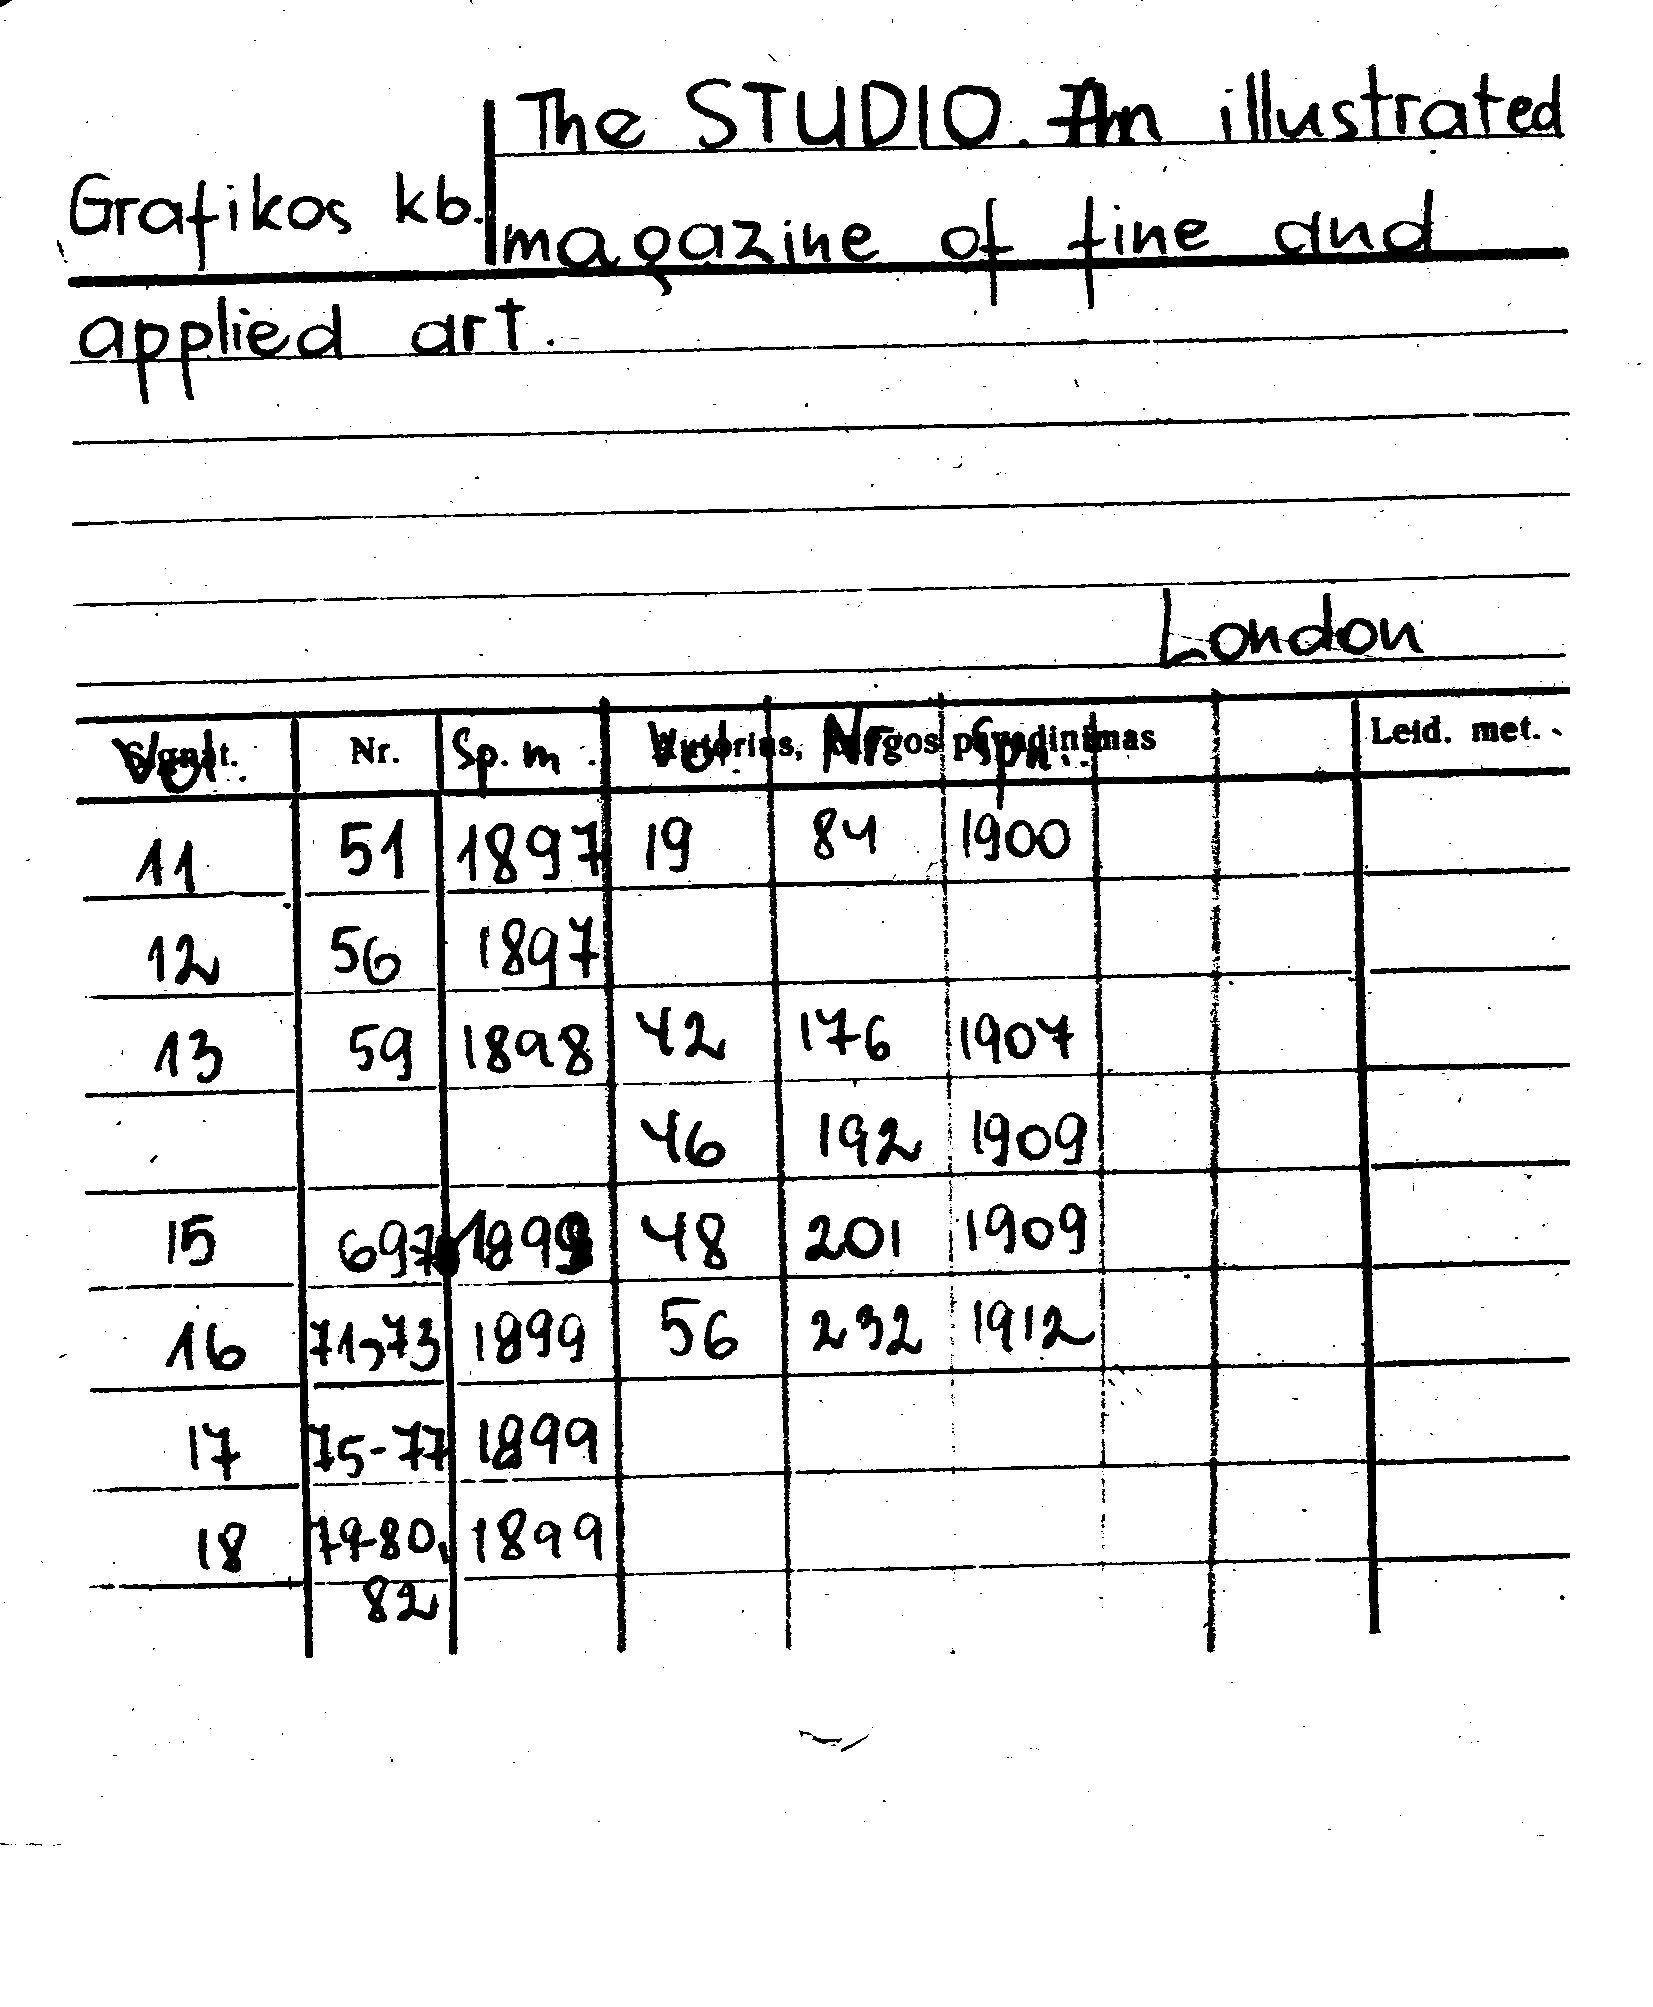 The STUDIO. An illustrated
Grafikos kb. magazine of fine and
applied art.
London
Vol. Nr. Sp. m. Vol. Nr. Sp. m. Leid. met.
11 51 1897 19 84 1900
12 56 1897
13 59 1898 42 176 1907
46 192 1909
15 69 1899 48 201 1909
16 71, 73 1899 56 232 1912
17 75-77 1899
18 79-80, 1899
82